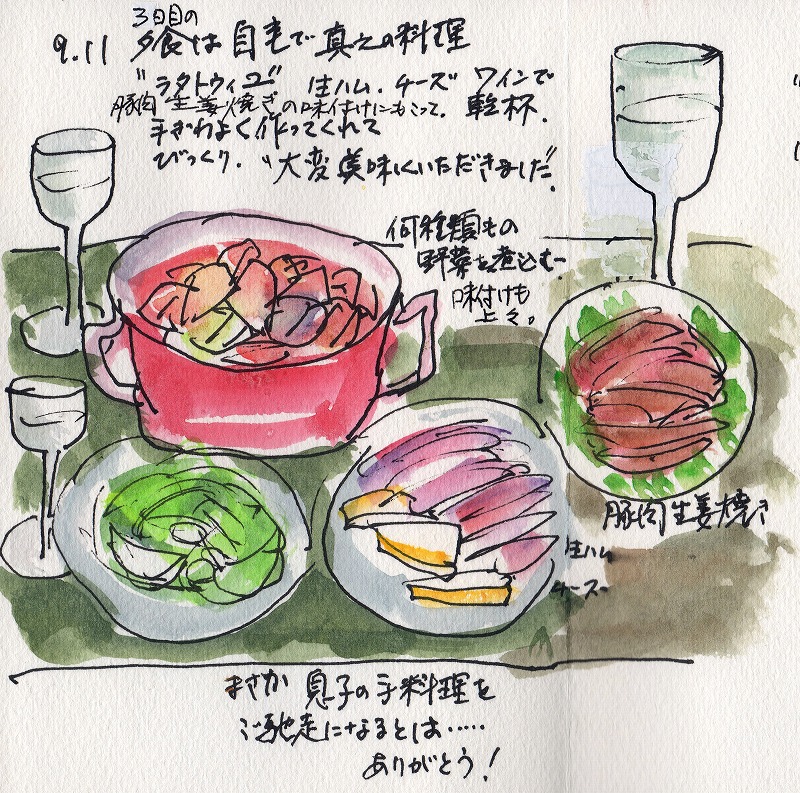 3日目の
9.11 夕食は自宅で真之の料理
"ラタトウィユ" 生ハム.チーズ ワインで
豚肉生姜焼きの味付けにもこって. 乾杯.
手ぎわよく作ってくれて
びっくり. "大変美味しくいただきました"
何種類もの
野菜を煮込む
味付けも
上々。
豚肉生姜焼き
生ハム
チーズ
まさか 息子の手料理を
ご馳走になるとは……
ありがとう!